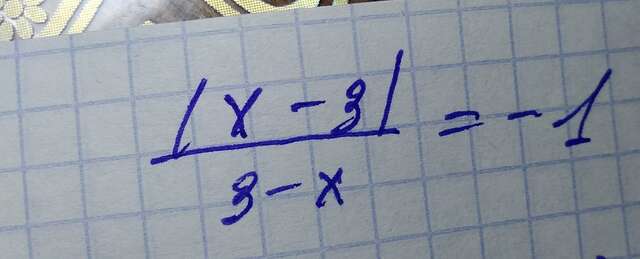 |x - 3|
3 - x
= - 1